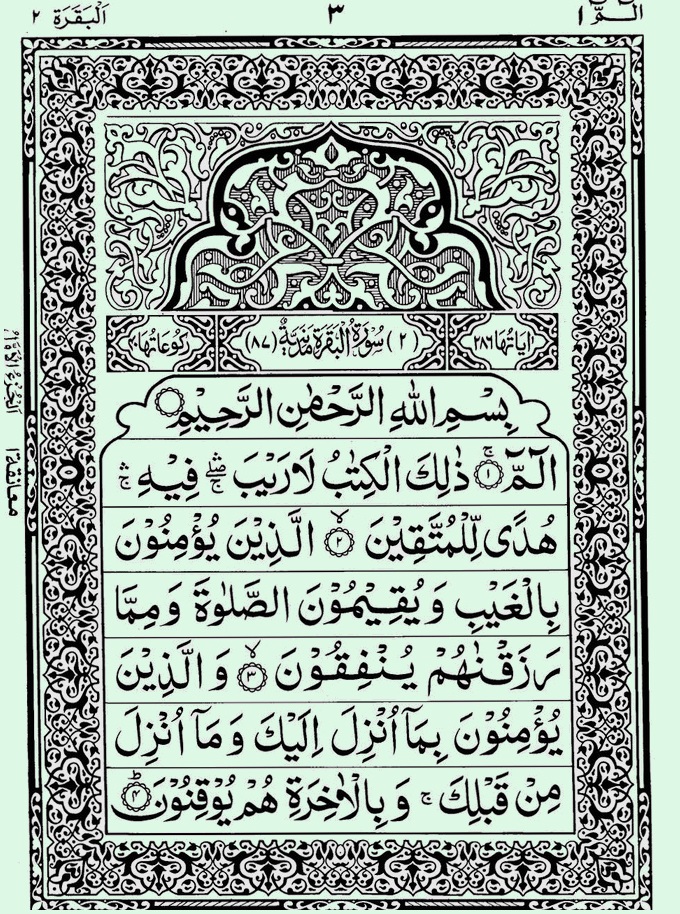 الٓـمّٓ ١ ٣ اَلْبَقَرَة ٢
اٰيَاتُهَا ٢٨٦ (٢) سُوْرَةُ الْبَقَرَةِ مَدَنِيَّةٌ (٨٧) رُكُوْعَاتُهَا ٤٠
بِسْمِ اللّٰهِ الرَّحْمٰنِ الرَّحِيْمِ
الٓمّٓ ۚ ١ ذٰلِكَ الْكِتٰبُ لَا رَيْبَ ۛۖۚ فِيْهِ ۛۚ
هُدًى لِّلْمُتَّقِيْنَ ۙ ٢ الَّذِيْنَ يُؤْمِنُوْنَ
بِالْغَيْبِ وَيُقِيْمُوْنَ الصَّلٰوةَ وَمِمَّا
رَزَقْنٰهُمْ يُنْفِقُوْنَ ۙ ٣ وَالَّذِيْنَ
يُؤْمِنُوْنَ بِمَآ اُنْزِلَ اِلَيْكَ وَمَآ اُنْزِلَ
مِنْ قَبْلِكَ ۚ وَبِالْاٰخِرَةِ هُمْ يُوْقِنُوْنَ ؕ ٤
معانقة ١